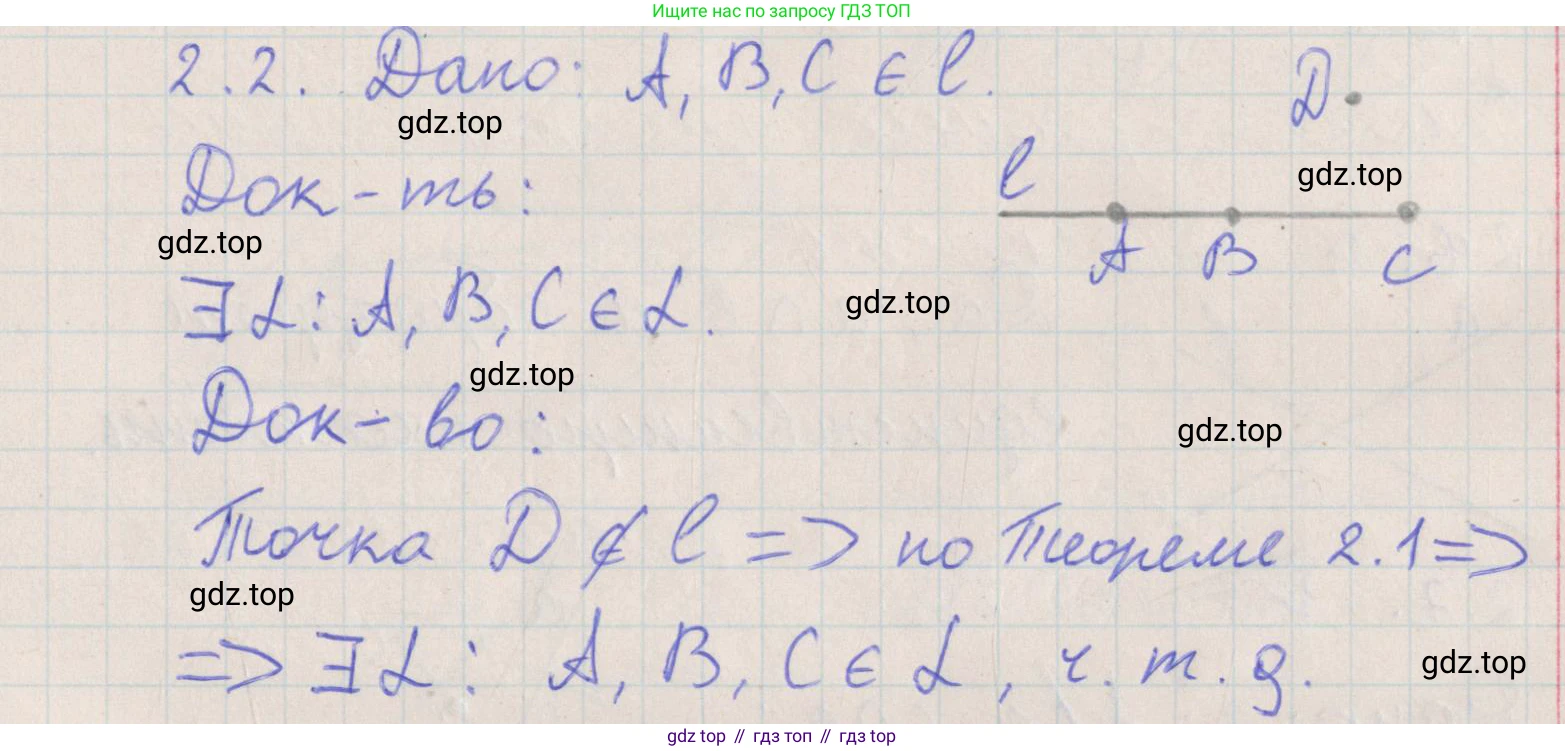 Ищите нас по запросу ГДЗ ТОП
2.2. Дано: A, B, C ∈ l.
D
gdz.top
Док-ть:
l
gdz.top
gdz.top
A B C
∃ α: A, B, C ∈ α.
gdz.top
gdz.top
Док-во:
gdz.top
Точка D ∉ l => по Теореме 2.1 =>
gdz.top
=> ∃ α: A, B, C ∈ α, ч. т. д.
gdz.top
gdz top // гдз топ // гдз top